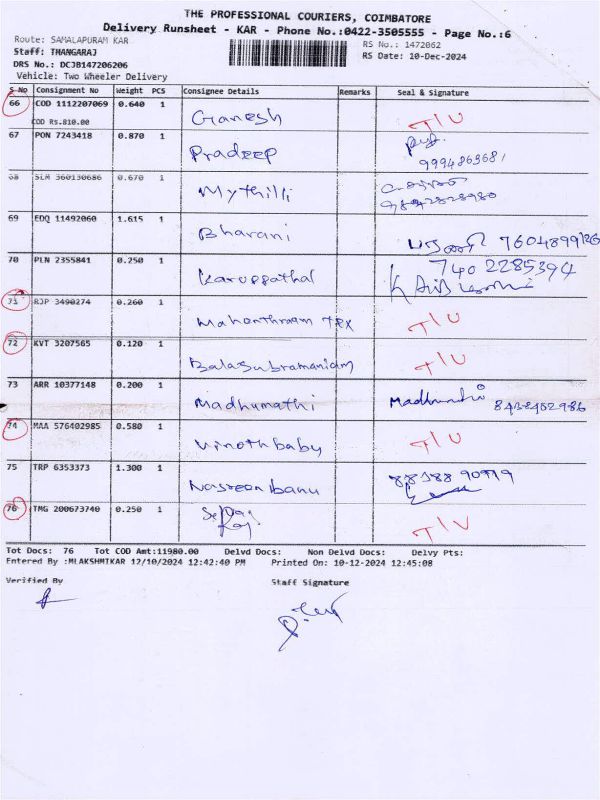 THE PROFESSIONAL COURIERS, COIMBATORE
Delivery Runsheet - KAR - Phone No.:0422-3505555 - Page No.:6
Route: SAMALAPURAM KAR
RS No.: 1472062
Staff: THANGARAJ
RS Date: 10-Dec-2024
DRS No.: DCJB147206206
Vehicle: Two Wheeler Delivery
S No Consignment No Weight PCS Consignee Details Remarks Seal & Signature
66 COD 1112207069 0.640 1 Ganesh T/U
COD Rs.810.00
67 PON 7243418 0.870 1 Pradeep
68 SLM 360130686 0.670 1 Mythilli
69 EDQ 11492060 1.615 1 Bharani பரணி 7604899126
70 PLN 2355841 0.250 1 Karuppathal 740 2285394
71 RJP 3490274 0.260 1 Mahenthraam Tex T/U
72 KVT 3207565 0.120 1 Balasubramaniam T/U
73 ARR 10377148 0.200 1 Madhumathi Madhumathi 8438452986
74 MAA 576402985 0.580 1 Vinothbaby T/U
75 TRP 6353373 1.300 1 Nasreen banu
76 TMG 200673740 0.250 1 T/U
Tot Docs: 76 Tot COD Amt:11980.00 Delvd Docs: Non Delvd Docs: Delvy Pts:
Entered By :MLAKSHMIKAR 12/10/2024 12:42:40 PM Printed On: 10-12-2024 12:45:08
Verified By Staff Signature